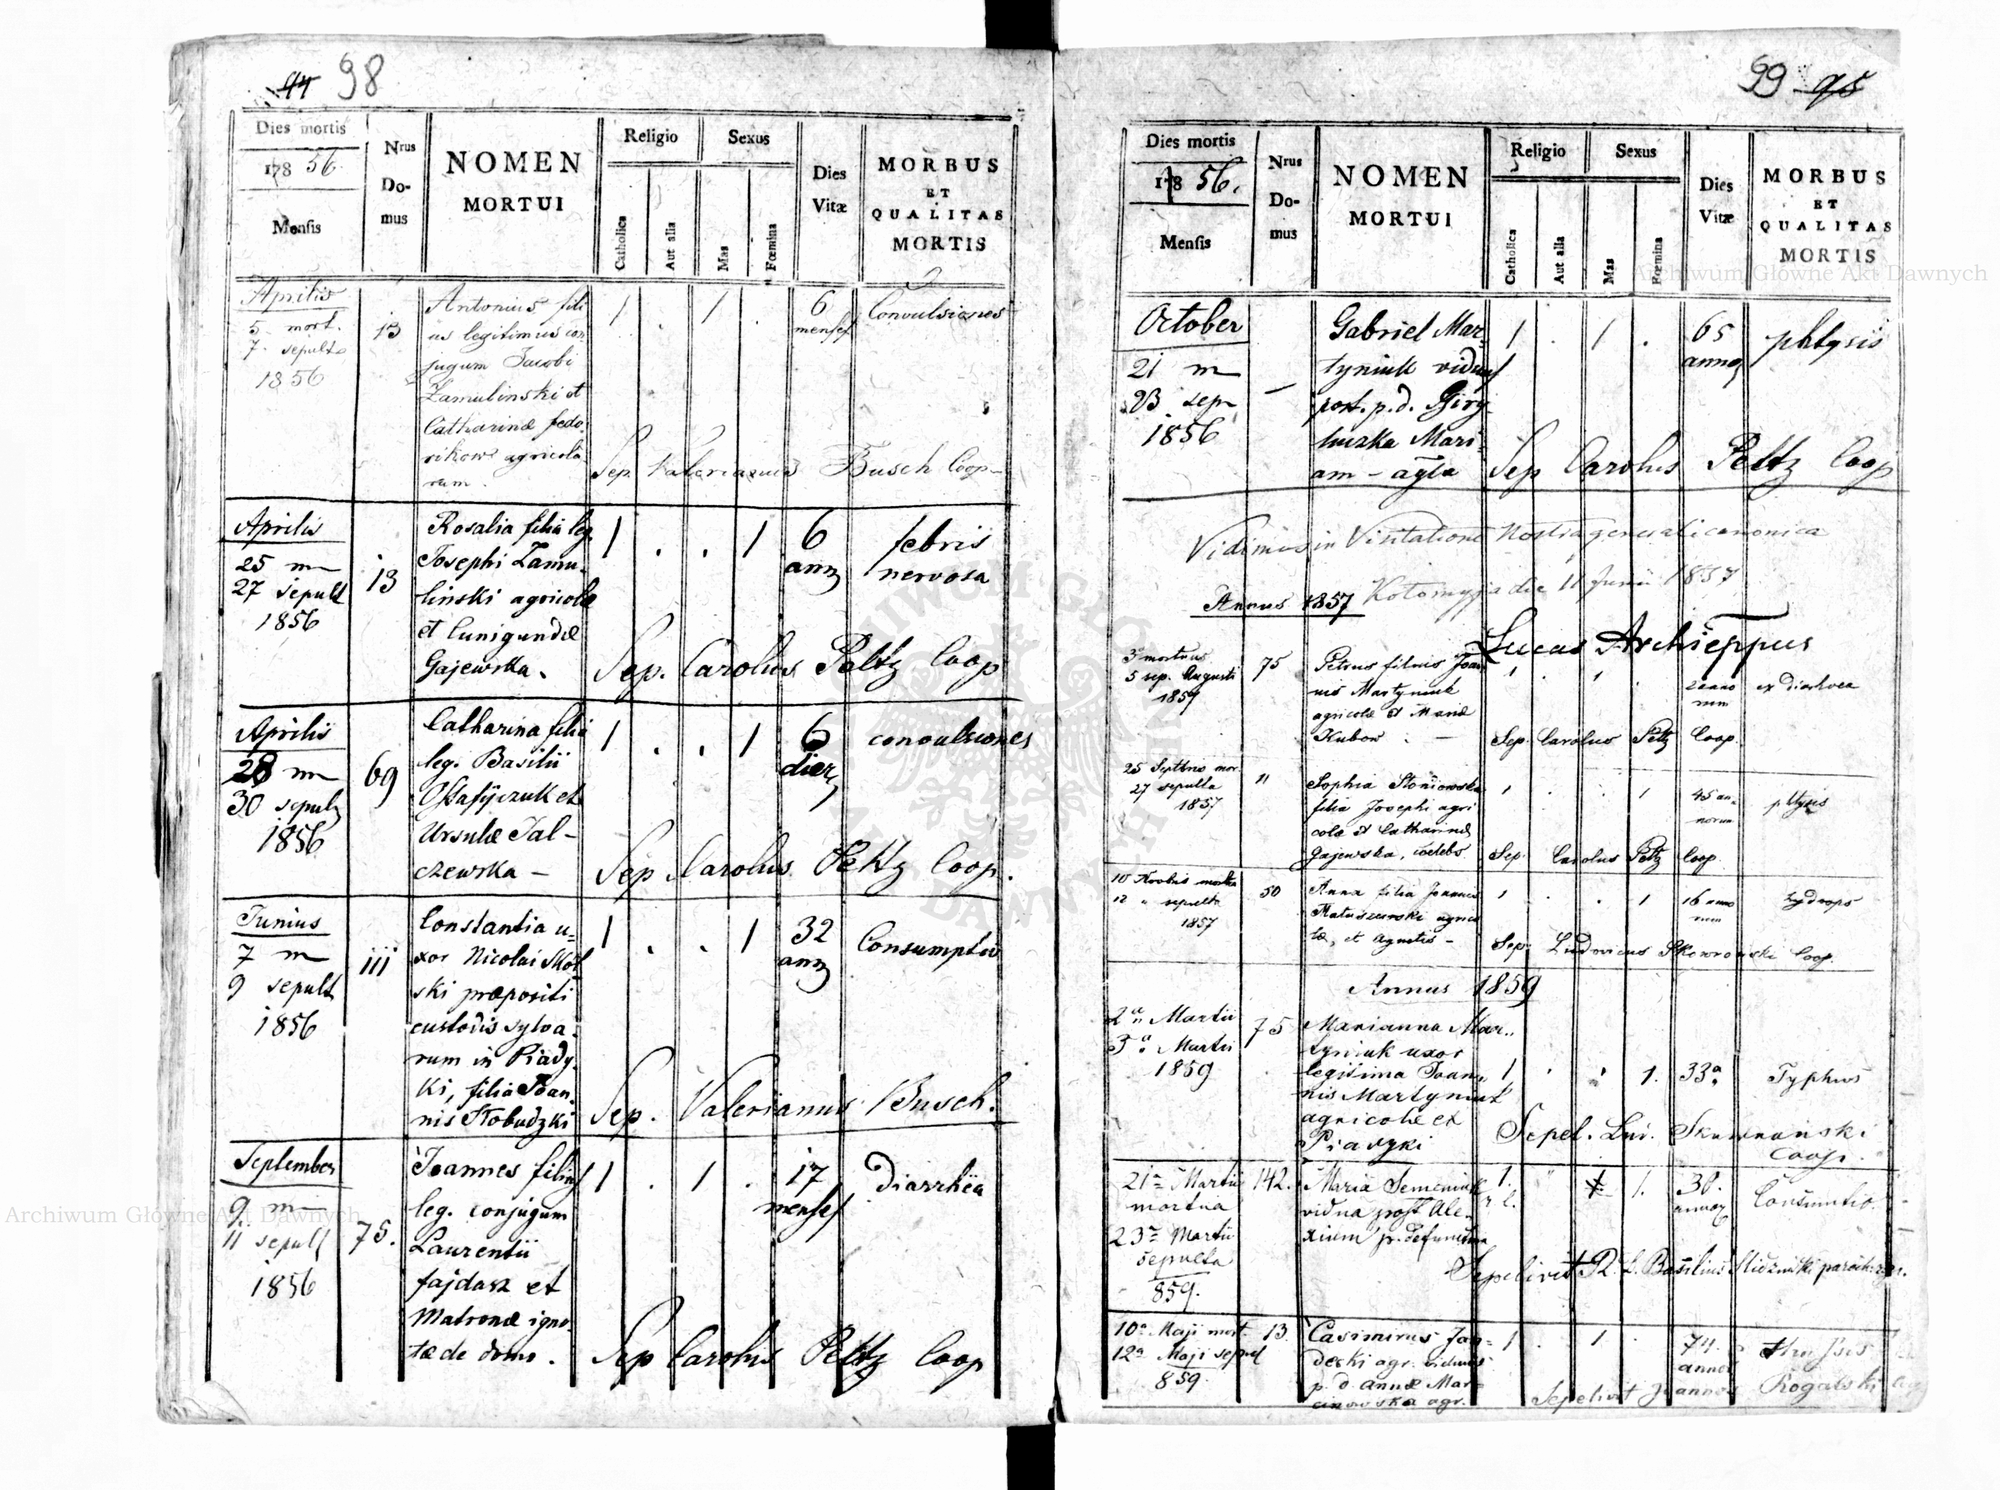 44 98
Dies mortis
178 56.
Mensis
Nrus
Do-
mus
NOMEN
MORTUI
Religio
Catholica
Aut alia
Sexus
Mas
Fœmina
Dies
Vitæ
MORBUS
ET
QUALITAS
MORTIS
Aprilis
5 mort.
7 sepult
1856
13
Antonius fili
us legitimus con
jugum Jacobi
Zamulinski et
Catharinæ fedo-
rikow agricola-
rum.
1 . 1 .
6
menses
Convulsiones
Sep. Valerianus Busch Coop
Aprilis
25 m
27 sepult
1856
13
Rosalia filia leg.
Josephi Zamu-
linski agricolæ
et Cunigundæ
Gajewska.
1 . . 1
6
ann
febris
nervosa
Sep. Carolus Peltz Coop
Aprilis
28 m
30 sepult
1856
69
Catharina filia
leg. Basilii
Ostafijczuk et
Ursulæ Jal-
czewska —
1 . . 1
6
dier
convulsiones
Sep Carolus Peltz Coop.
Junius
7 m
9 sepult
1856
111
Constantia u-
xor Nicolai Skol
ski præpositi
custodis sylva-
rum in Piady-
ki, filia Joan-
nis Stobudzki
1 . . 1
32
ann
Consumptio
Sep. Valerianus Busch.
September
9 m
11 sepult
1856
75.
Joannes filius
leg. conjugum
Laurentii
fajdasz et
Matronæ igno-
tæ de domo.
1 . 1 .
17
menses
Diarrhëa
Sep Carolus Peltz Coop
99 95
Dies mortis
178 56.
Mensis
Nrus
Do-
mus
NOMEN
MORTUI
Religio
Catholica
Aut alia
Sexus
Mas
Fœmina
Dies
Vitæ
MORBUS
ET
QUALITAS
MORTIS
October
21 m
23 sep
1856
—
Gabriel Mar-
tyniuk viduus
post. p. d.
Mari-
am — agla
1 . 1 .
65
annor
phtysis
Sep Carolus Peltz Coop
Vidimus in Visitatione Nostra generali canonica
Kołomyja die 11 Junii 1857
Lucas Archieppus
Annus 1857
3 mortuus
5 sep. Augusti
1857
75
Petrus filius Joan-
nis Martyniuk
agricolæ et Mariæ
Kubow . —
1 . 1 .
2 anno
rum
ex diarhea
Sep. Carolus Peltz Coop.
25 Septbris mor.
27 sepulta
1857
11
Sophia Słoniowska
filia Josephi agri
colæ et Catharinæ
Gajewska, cœlebs
1 . . 1
45 an-
norum
phtysis
Sep. Carolus Peltz Coop.
10 mortua
12 " sepulta
1857
50
Anna filia Joannis
Matuszewski agrico
læ, et Agnetis —
1 . . 1
16 anno
rum
hydrops
Sep. Ludovicus Skowronski Coop.
Annus 1859
2a Martii
5a Martii
1859
75
Marianna Mar-
tyniuk uxor
legitima Joan-
nis Martyniuk
agricolæ ex
Piadyki
1 . . 1.
33a
Typhus
Sepel. Lud. Skowronski
Coop.
21a Martii
mortua
23a Martii
sepulta
859.
142.
Maria Semeniuk
vidua post Ale-
xium p. defunctum
1. " 1.
36.
annor
Consumtio.
Sepelivit R. Basilius parochus
10a Maji mort.
12a Maji sepul
859.
13.
Casimirus Jan-
derki agr. viduus
p. d. Annæ Mar-
cinowska agr.
1 . 1 .
74.
annor
Sepelivit Joannes Rogalski
Archiwum Główne Akt Dawnych
Archiwum Główne Akt Dawnych
ARCHIWUM GŁÓWNE AKT DAWNYCH